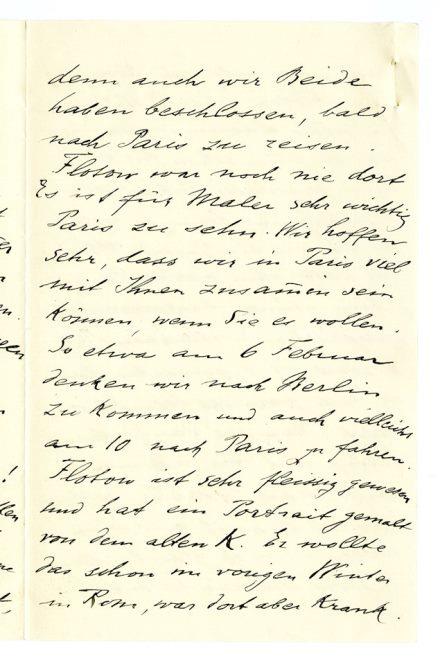 denn auch wir Beide
haben beschlossen, bald
nach Paris zu reisen.
Flotow war noch nie dort
Es ist für Maler sehr wichtig
Paris zu sehn. Wir hoffen
sehr, dass wir in Paris viel
mit Ihnen zusam̅en sein
können, wenn Sie es wollen.
So etwa am 6 Februar
denken wir nach Berlin
zu kommen und auch vielleicht
am 10 nach Paris zu fahren.
Flotow ist sehr fleissig gewesen
und hat ein Portrait gemalt
von dem alten K. Er wollte
das schon im vorigen Winter
in Rom, war dort aber krank.